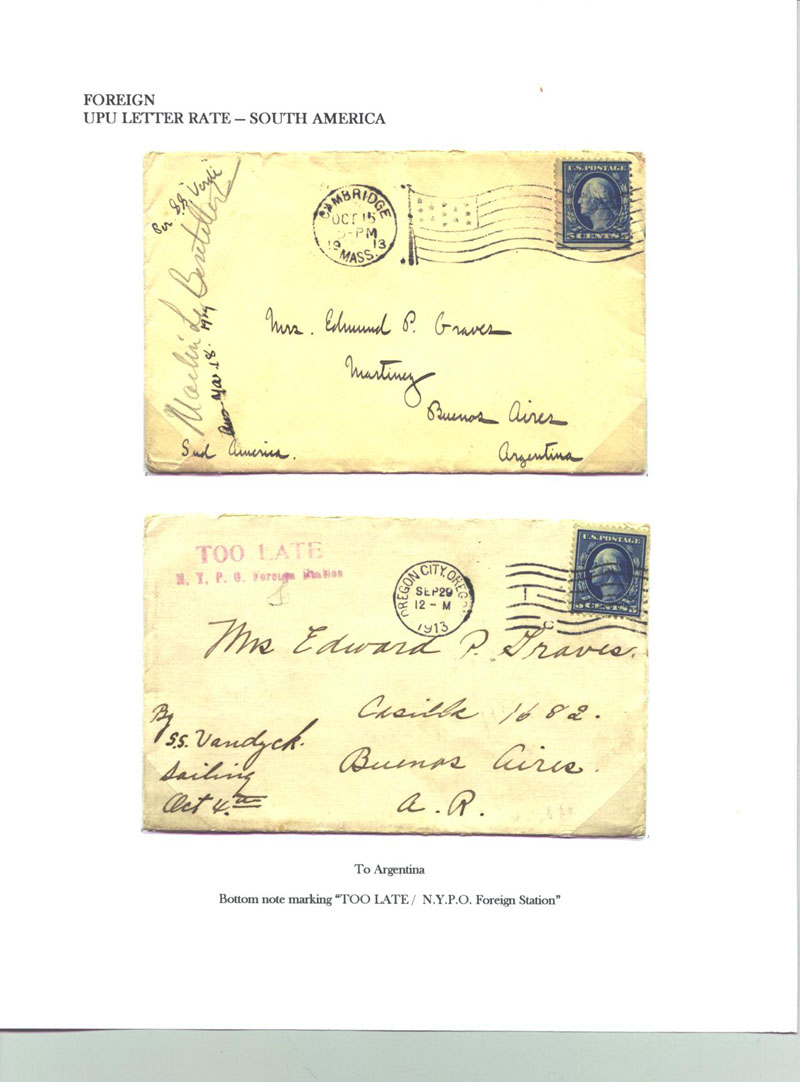 FOREIGN
UPU LETTER RATE – SOUTH AMERICA
Per SS "Verdi"
1914
CAMBRIDGE
OCT 15
-PM
19 13
MASS.
U.S. POSTAGE
5 CENTS 5
Mrs. Edmund P. Graves
Martinez
Buenos Aires
Sud America.
Argentina
TOO LATE
N. Y. P. O. Foreign Station
OREGON CITY, OREG.
SEP 29
12 - M
1913
U.S. POSTAGE
5 CENTS 5
Mrs Edward P. Graves.
Casilla 1682.
Buenos Aires.
A. R.
By
S.S. Vandyck.
Sailing
Oct 4th
To Argentina
Bottom note marking “TOO LATE / N.Y.P.O. Foreign Station”